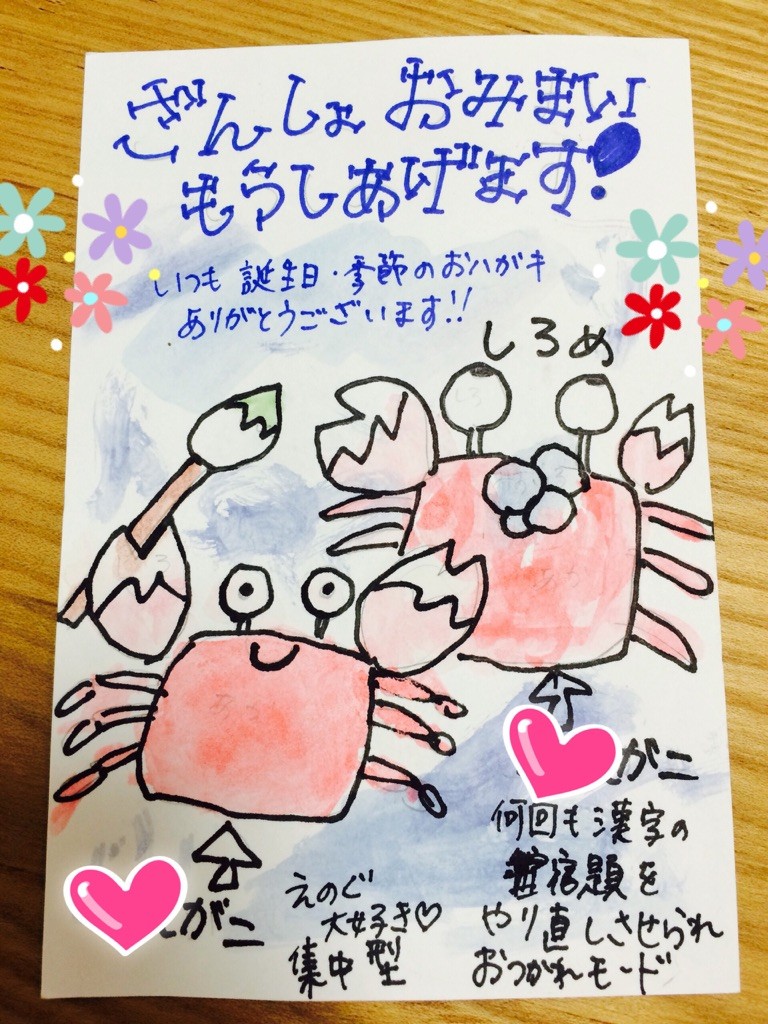 ざんしょ おみまい
もうしあげます!
いつも 誕生日・季節のおハガキ
ありがとうございます!!
しろめ
がニ
何回も漢字の
宿題を
やり直しさせられ
おつかれモード
がニ
えのぐ
大好き♡
集中型